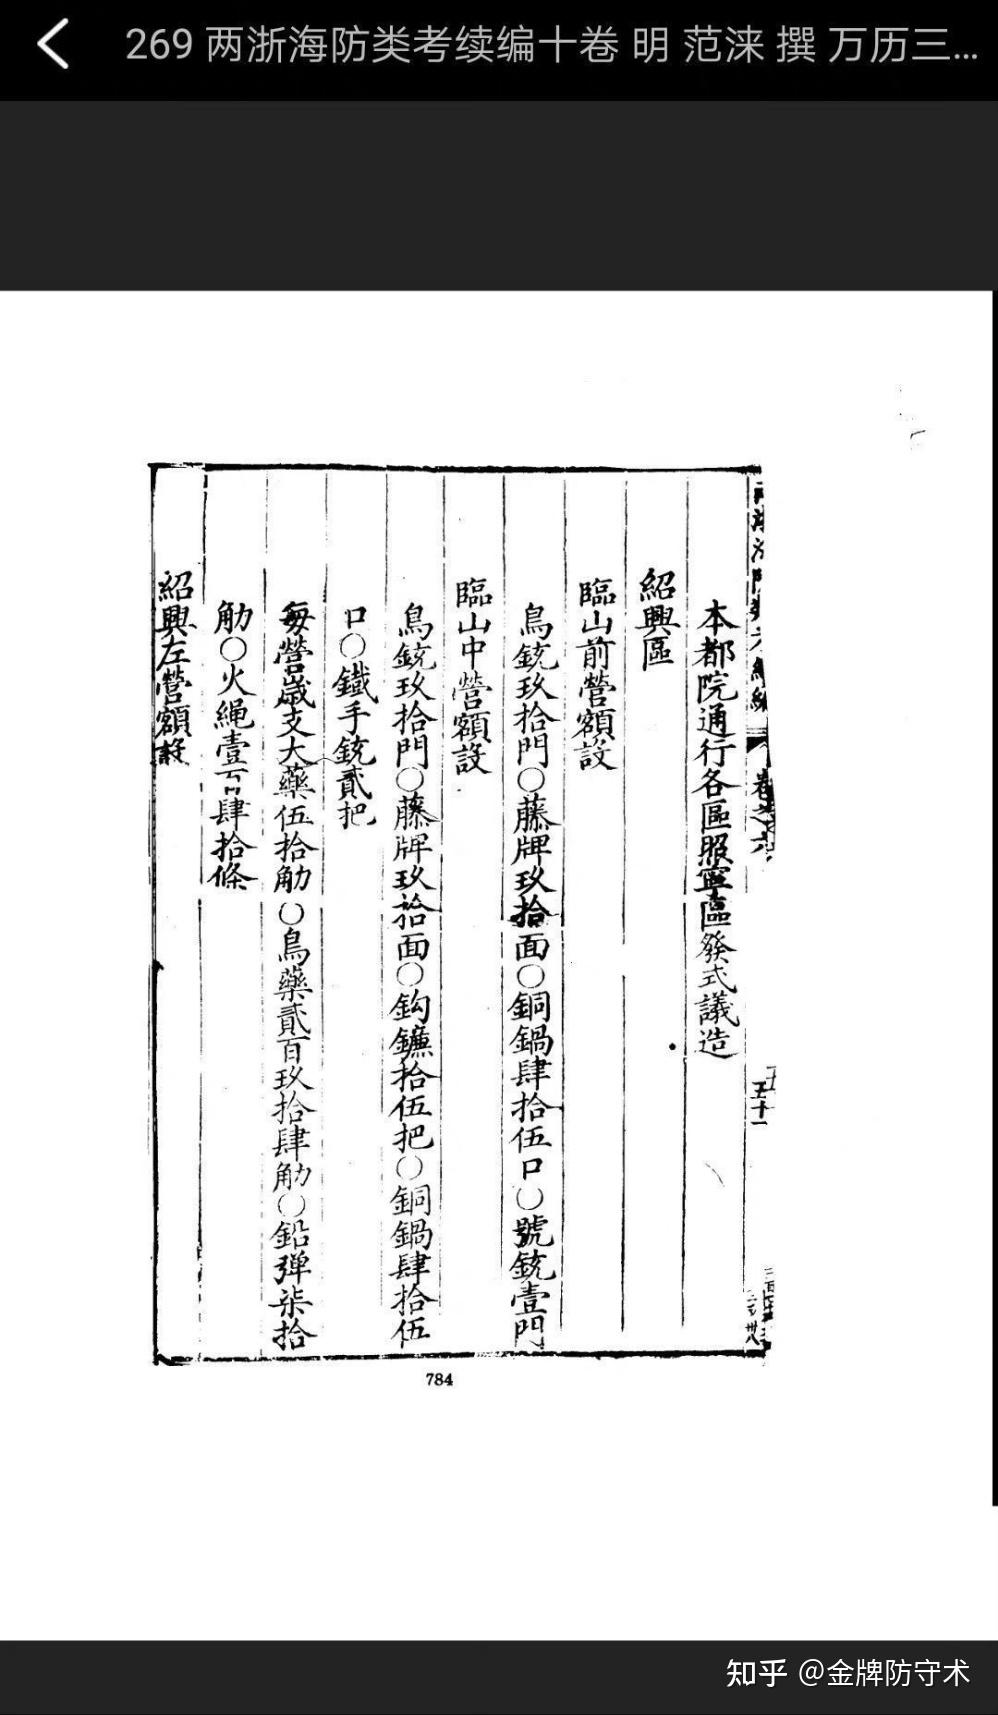 269 两浙海防类考续编十卷 明 范涞 撰 万历三...
卷之六
五十一
本都院通行各區照寧區發式議造
紹興區
臨山前營額設
鳥銃玖拾門○藤牌玖拾面○銅鍋肆拾伍口○號銃壹門
臨山中營額設
鳥銃玖拾門○藤牌玖拾面○鈎鐮拾伍把○銅鍋肆拾伍
口○鐵手銃貳把
每營歲支大藥伍拾觔○鳥藥貳百玖拾肆觔○鉛弹柒拾
觔○火繩壹百肆拾條
紹興左營額設
784
知乎 @金牌防守术